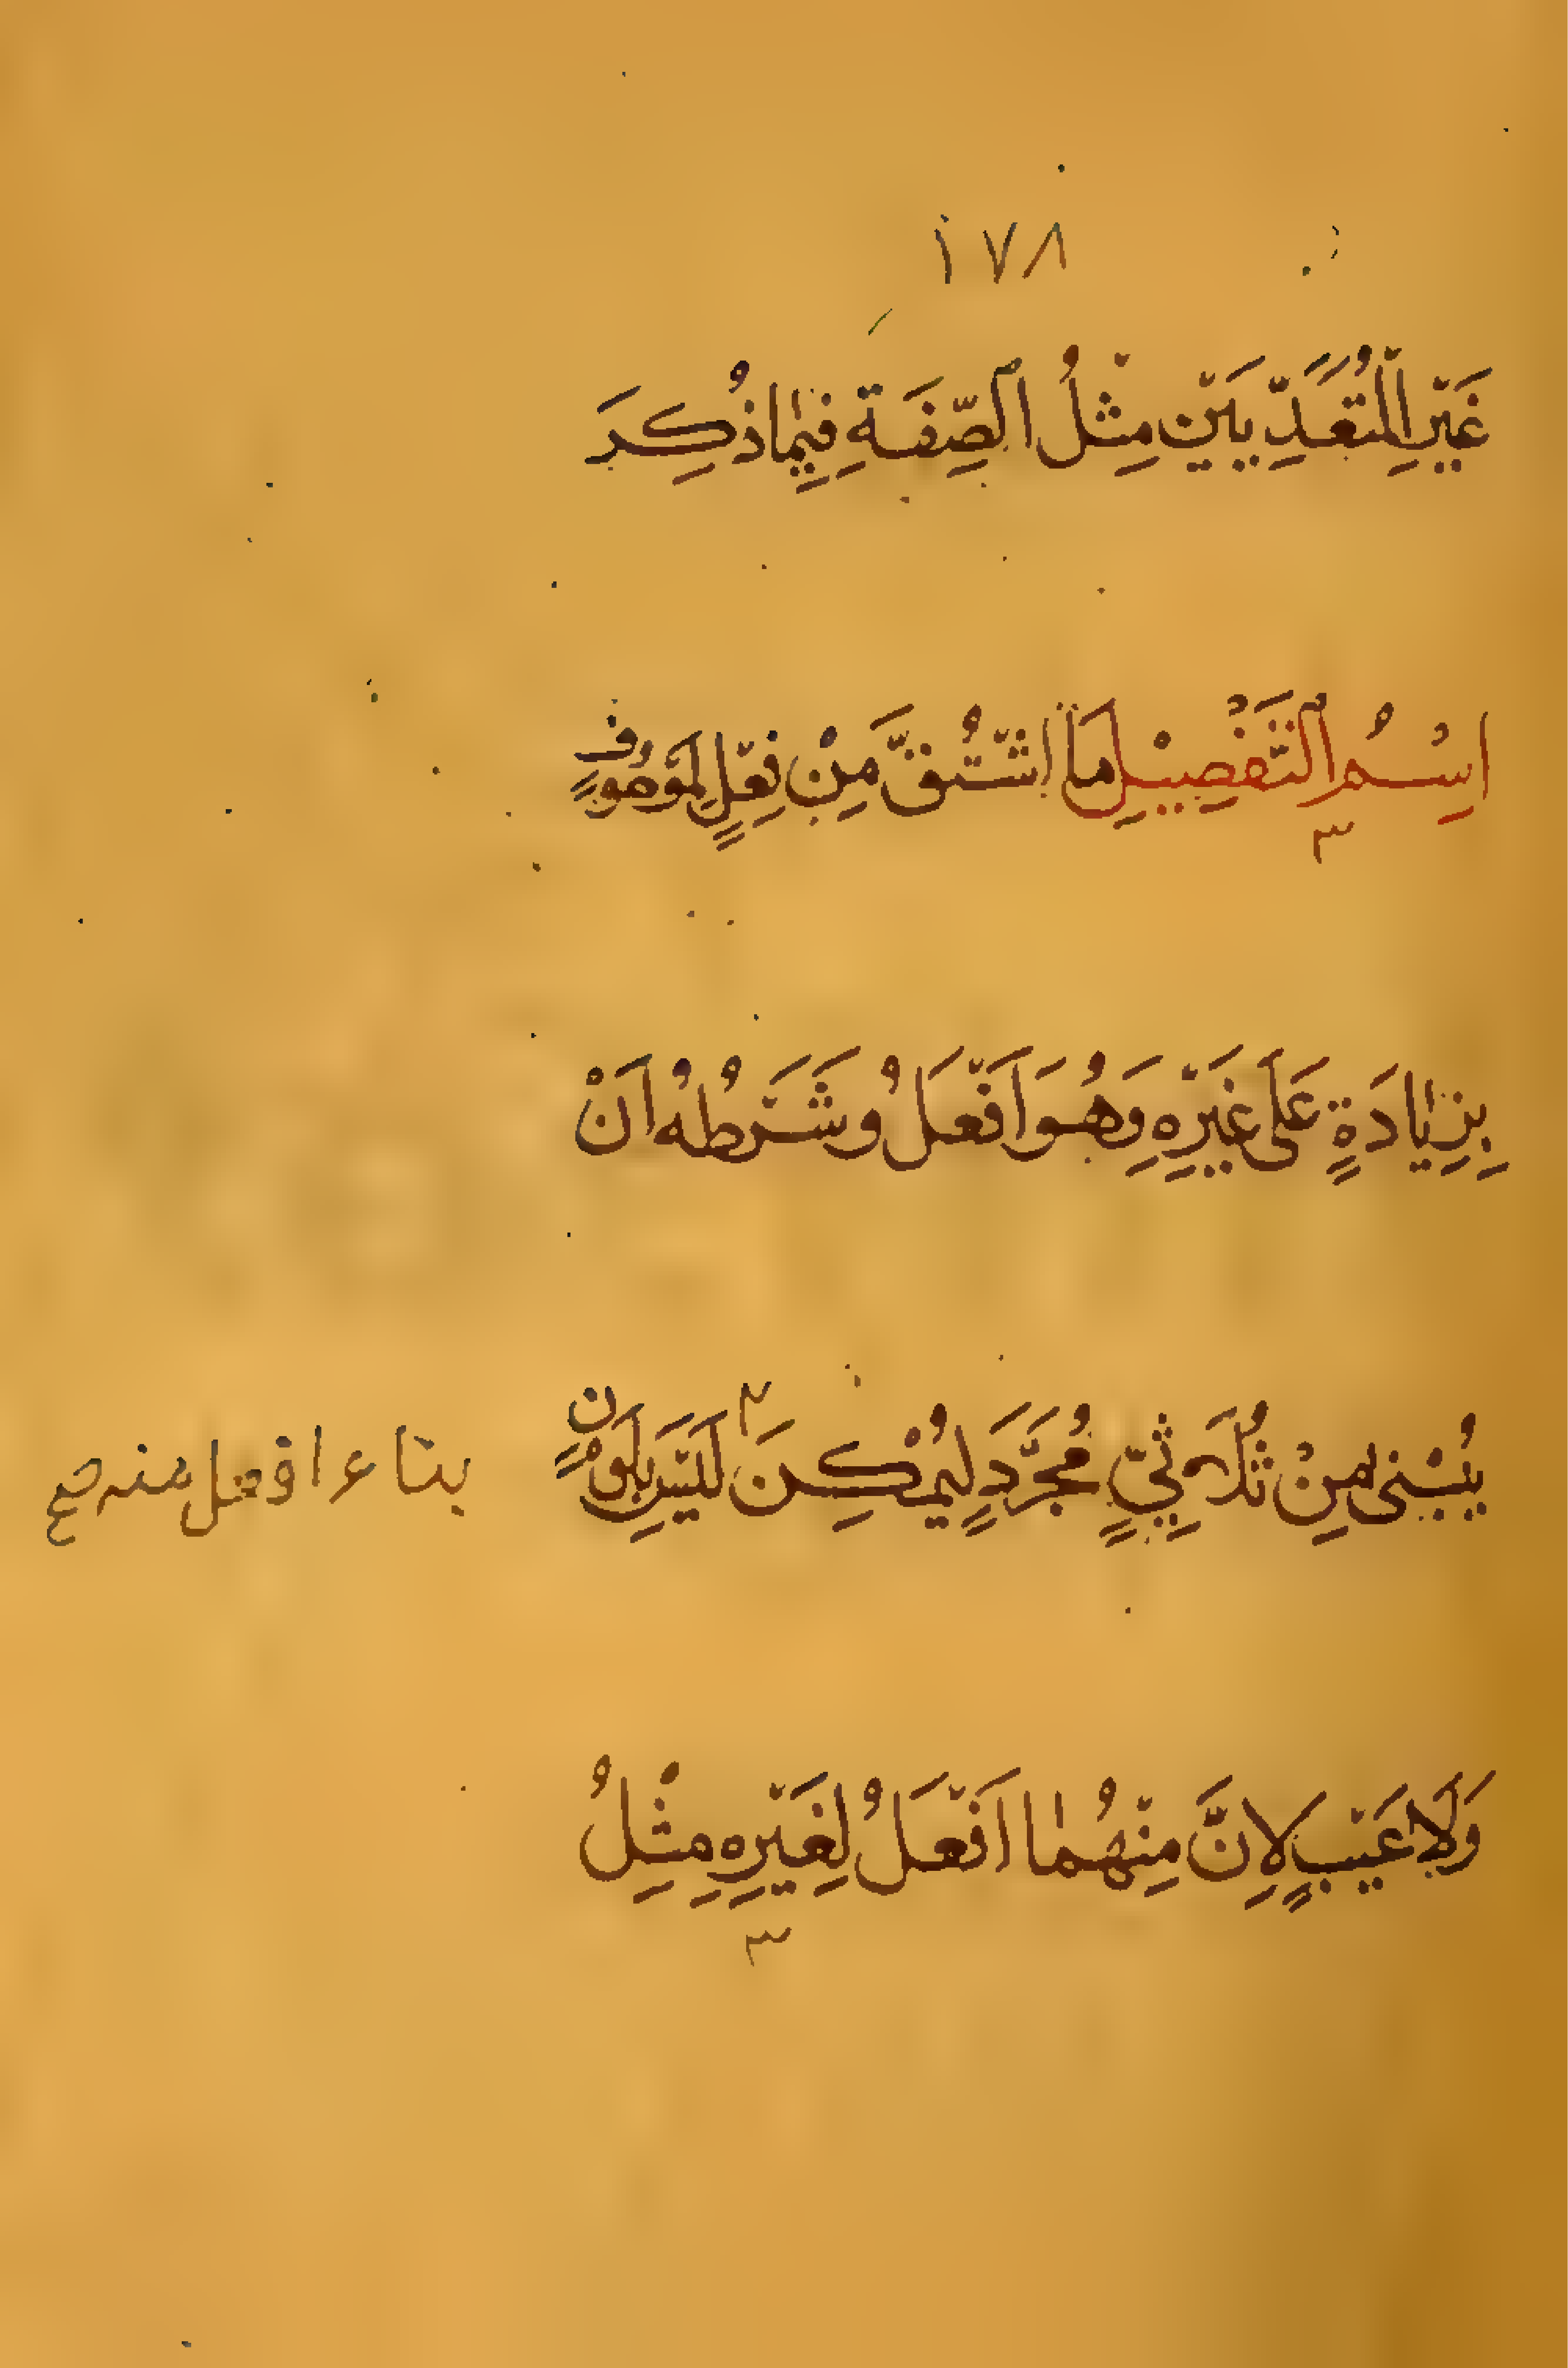 ١٧٨
غَيْرِ الْمُتَعَدِّيَيْنِ مِثْلُ الصِّفَةِ فِيمَا ذُكِرَ
اِسْمُ التَّفْضِيلِ مَا اشْتُقَّ مِنْ فِعْلٍ لِمَوْصُوفٍ
بِزِيَادَةٍ عَلَى غَيْرِهِ وَهُوَ اَفْعَلُ وَشَرْطُهُ اَنْ
يُبْنٰى مِنْ ثُلَاثِيٍّ مُجَرَّدٍ لِيُمْكِنَ لَيْسَ بِلَوْنٍ
بناء افعل منه صح
وَلَا عَيْبٍ لِاَنَّ مِنْهُمَا اَفْعَلُ لِغَيْرِهِ مِثْلُ